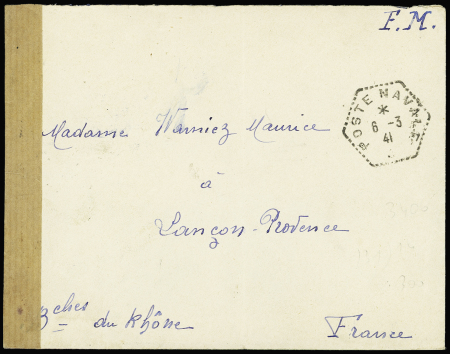 F.M.
POSTE NAVALE
*
6 -3
41
Madame Warniez Maurice
à
Lançon-Provence
Bches du Rhône
France